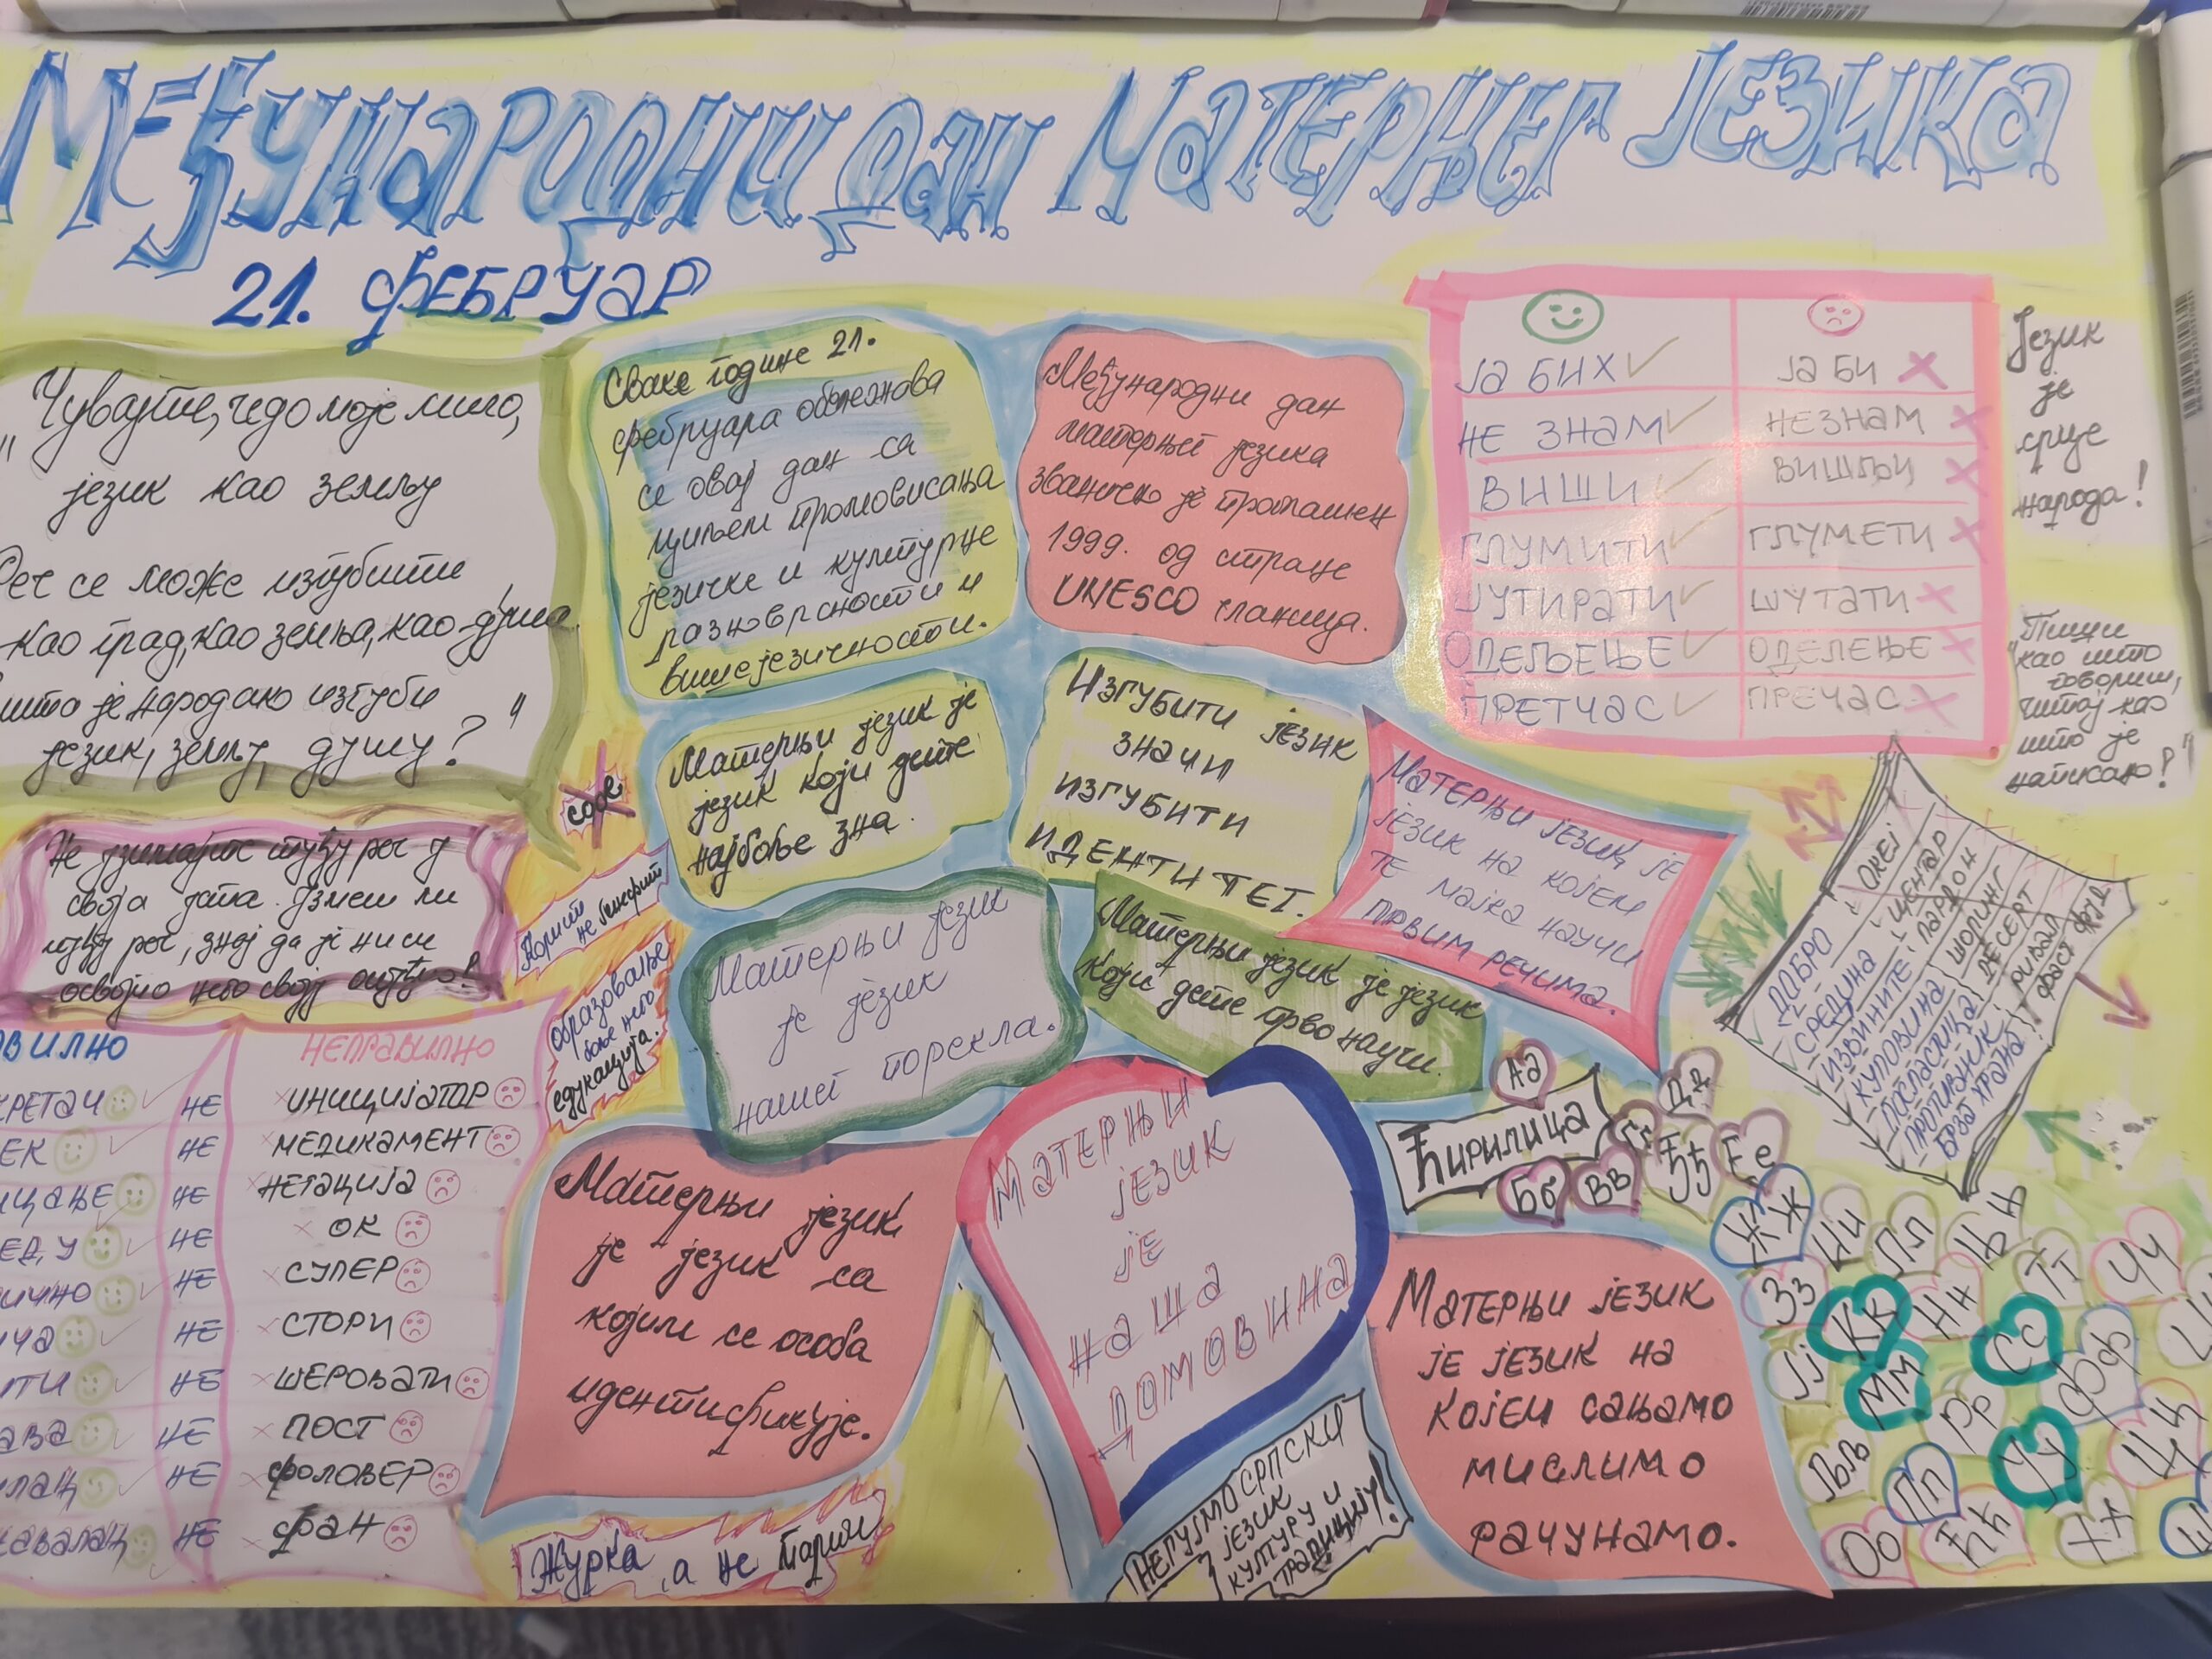 МЕЂУНАРОДНИ ДАН МАТЕРЊЕГ ЈЕЗИКА
21. ФЕБРУАР
"Чувајте, чедо моје мило,
језик као земљу
Реч се може изгубити
као град, као земља, као душа.
Шта је народ ако изгуби
језик, земљу, душу?"
Сваке године 21.
фебруара обележава
се овај дан са
циљем промовисања
језичке и културне
разноврсности и
вишејезичности.
Међународни дан
матерњег језика
званично је проглашен
1999. од стране
UNESCO чланица.
ЈА БИХ ЈА БИ
НЕ ЗНАМ НЕЗНАМ
ВИШИ ВИШЉИ
ГЛУМИТИ ГЛУМЕТИ
ШУТИРАТИ ШУТАТИ
ОДЕЉЕЊЕ ОДЕЛЕЊЕ
ПРЕТЧАС ПРЕЧАС
Језик
је
срце
народа!
"Пиши
као што
говориш,
читај као
што је
написано!"
Матерњи језик је
језик који дете
најбоље зна.
ИЗГУБИТИ ЈЕЗИК
ЗНАЧИ
ИЗГУБИТИ
ИДЕНТИТЕТ.
МАТЕРЊИ ЈЕЗИК ЈЕ
ЈЕЗИК НА КОЈЕМ
ТЕ МАЈКА НАУЧИ
ПРВИМ РЕЧИМА.
Не узимајте туђу реч у
своја уста. Узмеш ли
туђу реч, знај да је ниси
освојио него своју отуђио!
Корист
не бенефит
ОБРАЗОВАЊЕ
боље него
едукација.
Матерњи језик
је језик
нашег порекла.
Матерњи језик је језик
који дете прво научи.
ДОБРО ОКЕЈ
СРЕДИНА ЦЕНТАР
ИЗВИНИТЕ ПАРДОН
КУПОВИНА ШОПИНГ
ПОСЛАСТИЦА ДЕСЕРТ
ПРОТИВНИК РИВАЛ
БРЗА ХРАНА ФАСТ ФУД
НЕПРАВИЛНО
НЕ ИНИЦИЈАТОР
НЕ МЕДИКАМЕНТ
НЕ НЕГАЦИЈА
НЕ ОК
НЕ СУПЕР
НЕ СТОРИ
НЕ ШЕРОВАТИ
НЕ ПОСТ
НЕ ФОЛОВЕР
НЕ ФАН
Матерњи језик
је језик са
којим се особа
идентификује.
МАТЕРЊИ
ЈЕЗИК
ЈЕ
НАША
ДОМОВИНА
МАТЕРЊИ ЈЕЗИК
ЈЕ ЈЕЗИК НА
КОЈЕМ САЊАМО
МИСЛИМО
РАЧУНАМО.
ЖУРКА, а не
НЕГУЈМО СРПСКИ
ЈЕЗИК
КУЛТУРУ И
ТРАДИЦИЈУ!
ЋИРИЛИЦА
Аа
Бб Вв Гг Дд
Ђђ Ее
Жж
Зз Ии
Јј Кк Лл
Љљ Мм Нн Њњ
Оо Пп Рр Сс Тт
Ћћ Уу Фф
Хх Цц Чч